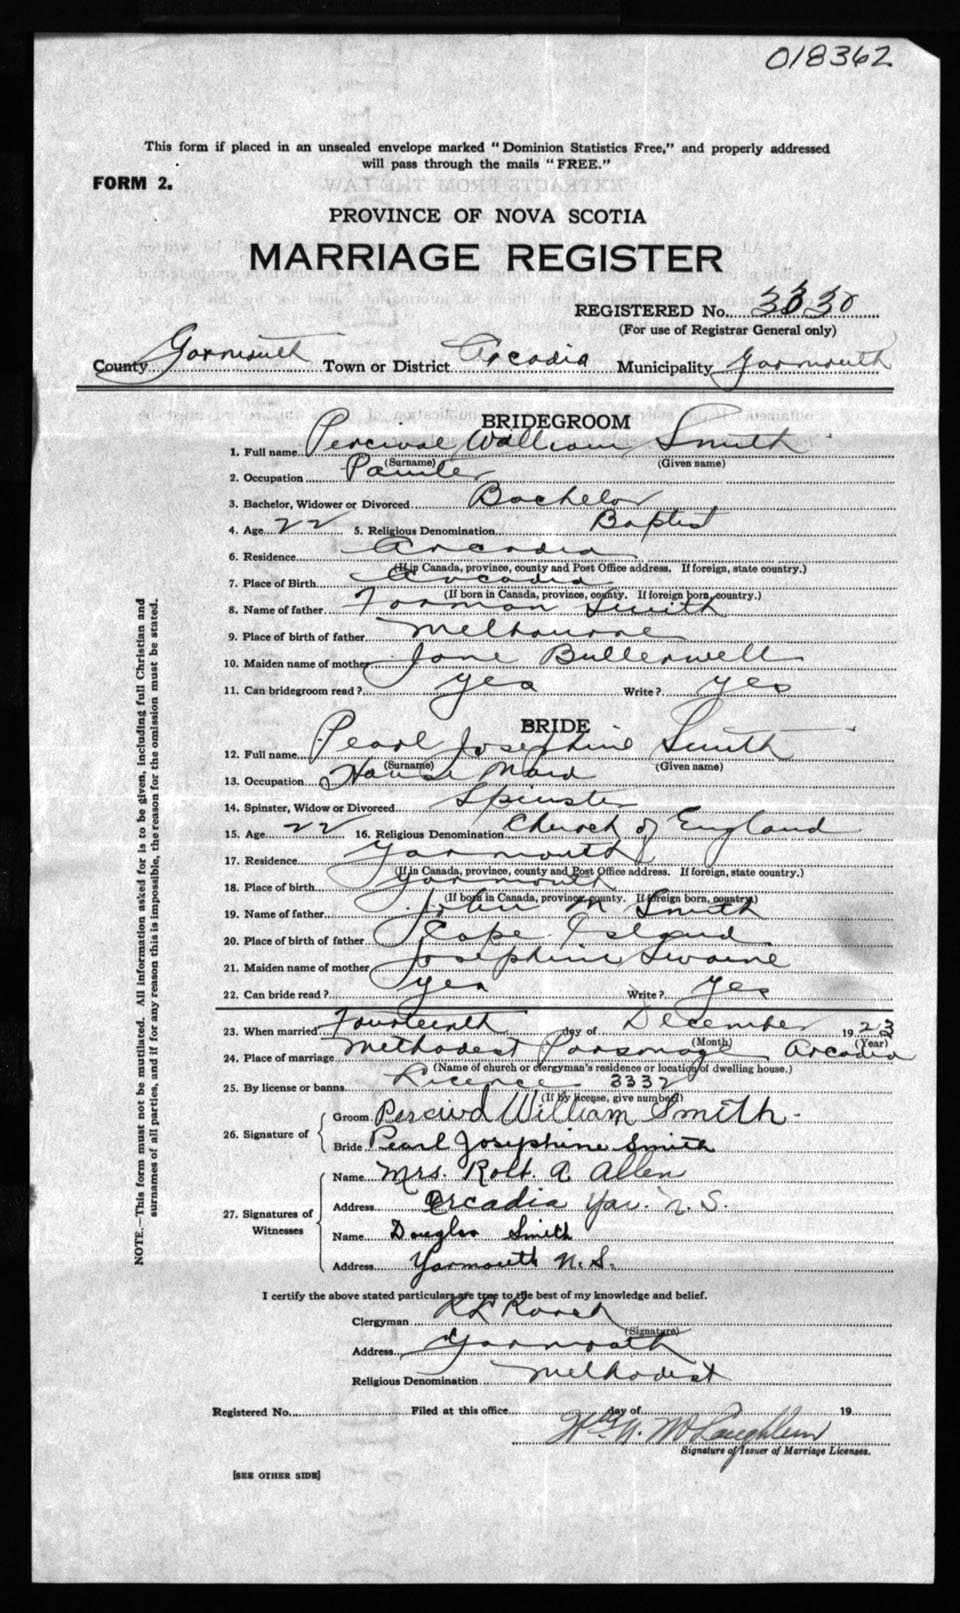 018362
This form if placed in an unsealed envelope marked "Dominion Statistics Free," and properly addressed
will pass through the mails "FREE."
FORM 2.
PROVINCE OF NOVA SCOTIA
MARRIAGE REGISTER
REGISTERED No. 3330
(For use of Registrar General only)
County Yarmouth Town or District Arcadia Municipality Yarmouth
BRIDEGROOM
1. Full name Percival William Smith
(Surname) (Given name)
2. Occupation Painter
3. Bachelor, Widower or Divorced Bachelor
4. Age 22 5. Religious Denomination Baptist
6. Residence Arcadia
(If in Canada, province, county and Post Office address. If foreign, state country.)
7. Place of Birth Arcadia
(If born in Canada, province, county. If foreign born, country.)
8. Name of father Forman Smith
9. Place of birth of father Melbourne
10. Maiden name of mother Jane Butterwell
11. Can bridegroom read? yes Write? yes
BRIDE
12. Full name Pearl Josephine Smith
(Surname) (Given name)
13. Occupation House Maid
14. Spinster, Widow or Divorced Spinster
15. Age 22 16. Religious Denomination Church of England
17. Residence Yarmouth
(If in Canada, province, county and Post Office address. If foreign, state country.)
18. Place of birth Yarmouth
(If born in Canada, province, county. If foreign born, country.)
19. Name of father John M Smith
20. Place of birth of father Cape Island
21. Maiden name of mother Josephine Swaine
22. Can bride read? yes Write? yes
23. When married Fourteenth day of December 1923
(Month) (Year)
24. Place of marriage Methodest Parsonage Arcadia
(Name of church or clergyman's residence or location of dwelling house.)
25. By license or banns Licence 3332
(If by license, give number)
26. Signature of
Groom Percival William Smith
Bride Pearl Josephine Smith
27. Signatures of Witnesses
Name Mrs. Robt. A. Allen
Address Arcadia Yar. N.S.
Name Douglas Smith
Address Yarmouth N.S.
I certify the above stated particulars are true to the best of my knowledge and belief.
Clergyman
(Signature)
Address Yarmouth
Religious Denomination Methodist
Registered No. Filed at this office day of 19
Wm. N. McLaughlin
Signature of Issuer of Marriage Licenses.
[SEE OTHER SIDE]
NOTE.—This form must not be mutilated. All information asked for is to be given, including full Christian and
surnames of all parties, and if for any reason this is impossible, the reason for the omission must be stated.